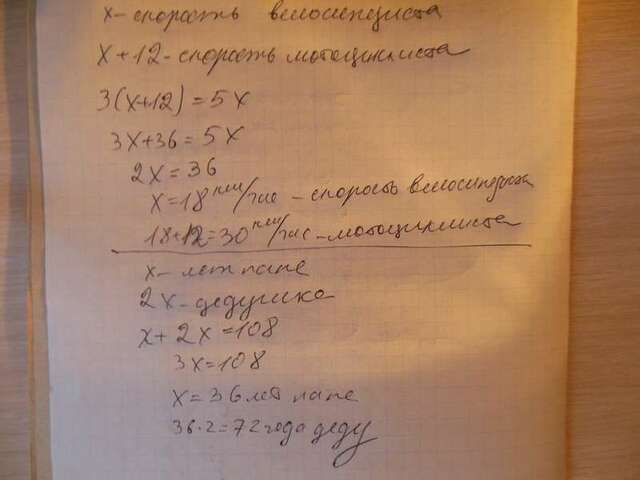 x - скорость велосипедиста
x + 12 - скорость мотоциклиста
3(x+12) = 5x
3x+36 = 5x
2x = 36
x = 18 км/час - скорость велосипедиста
18+12=30 км/час - мотоциклиста
x - лет папе
2x - дедушке
x + 2x = 108
3x = 108
x = 36 лет папе
36·2=72 года деду